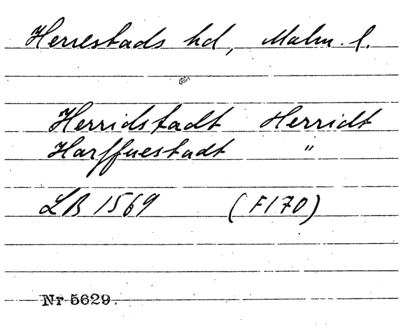 Herrestads hd, Malm. l.
Herridstadt Herridt
Harffuestadt "
LB 1569 (F170)
Nr 5629.